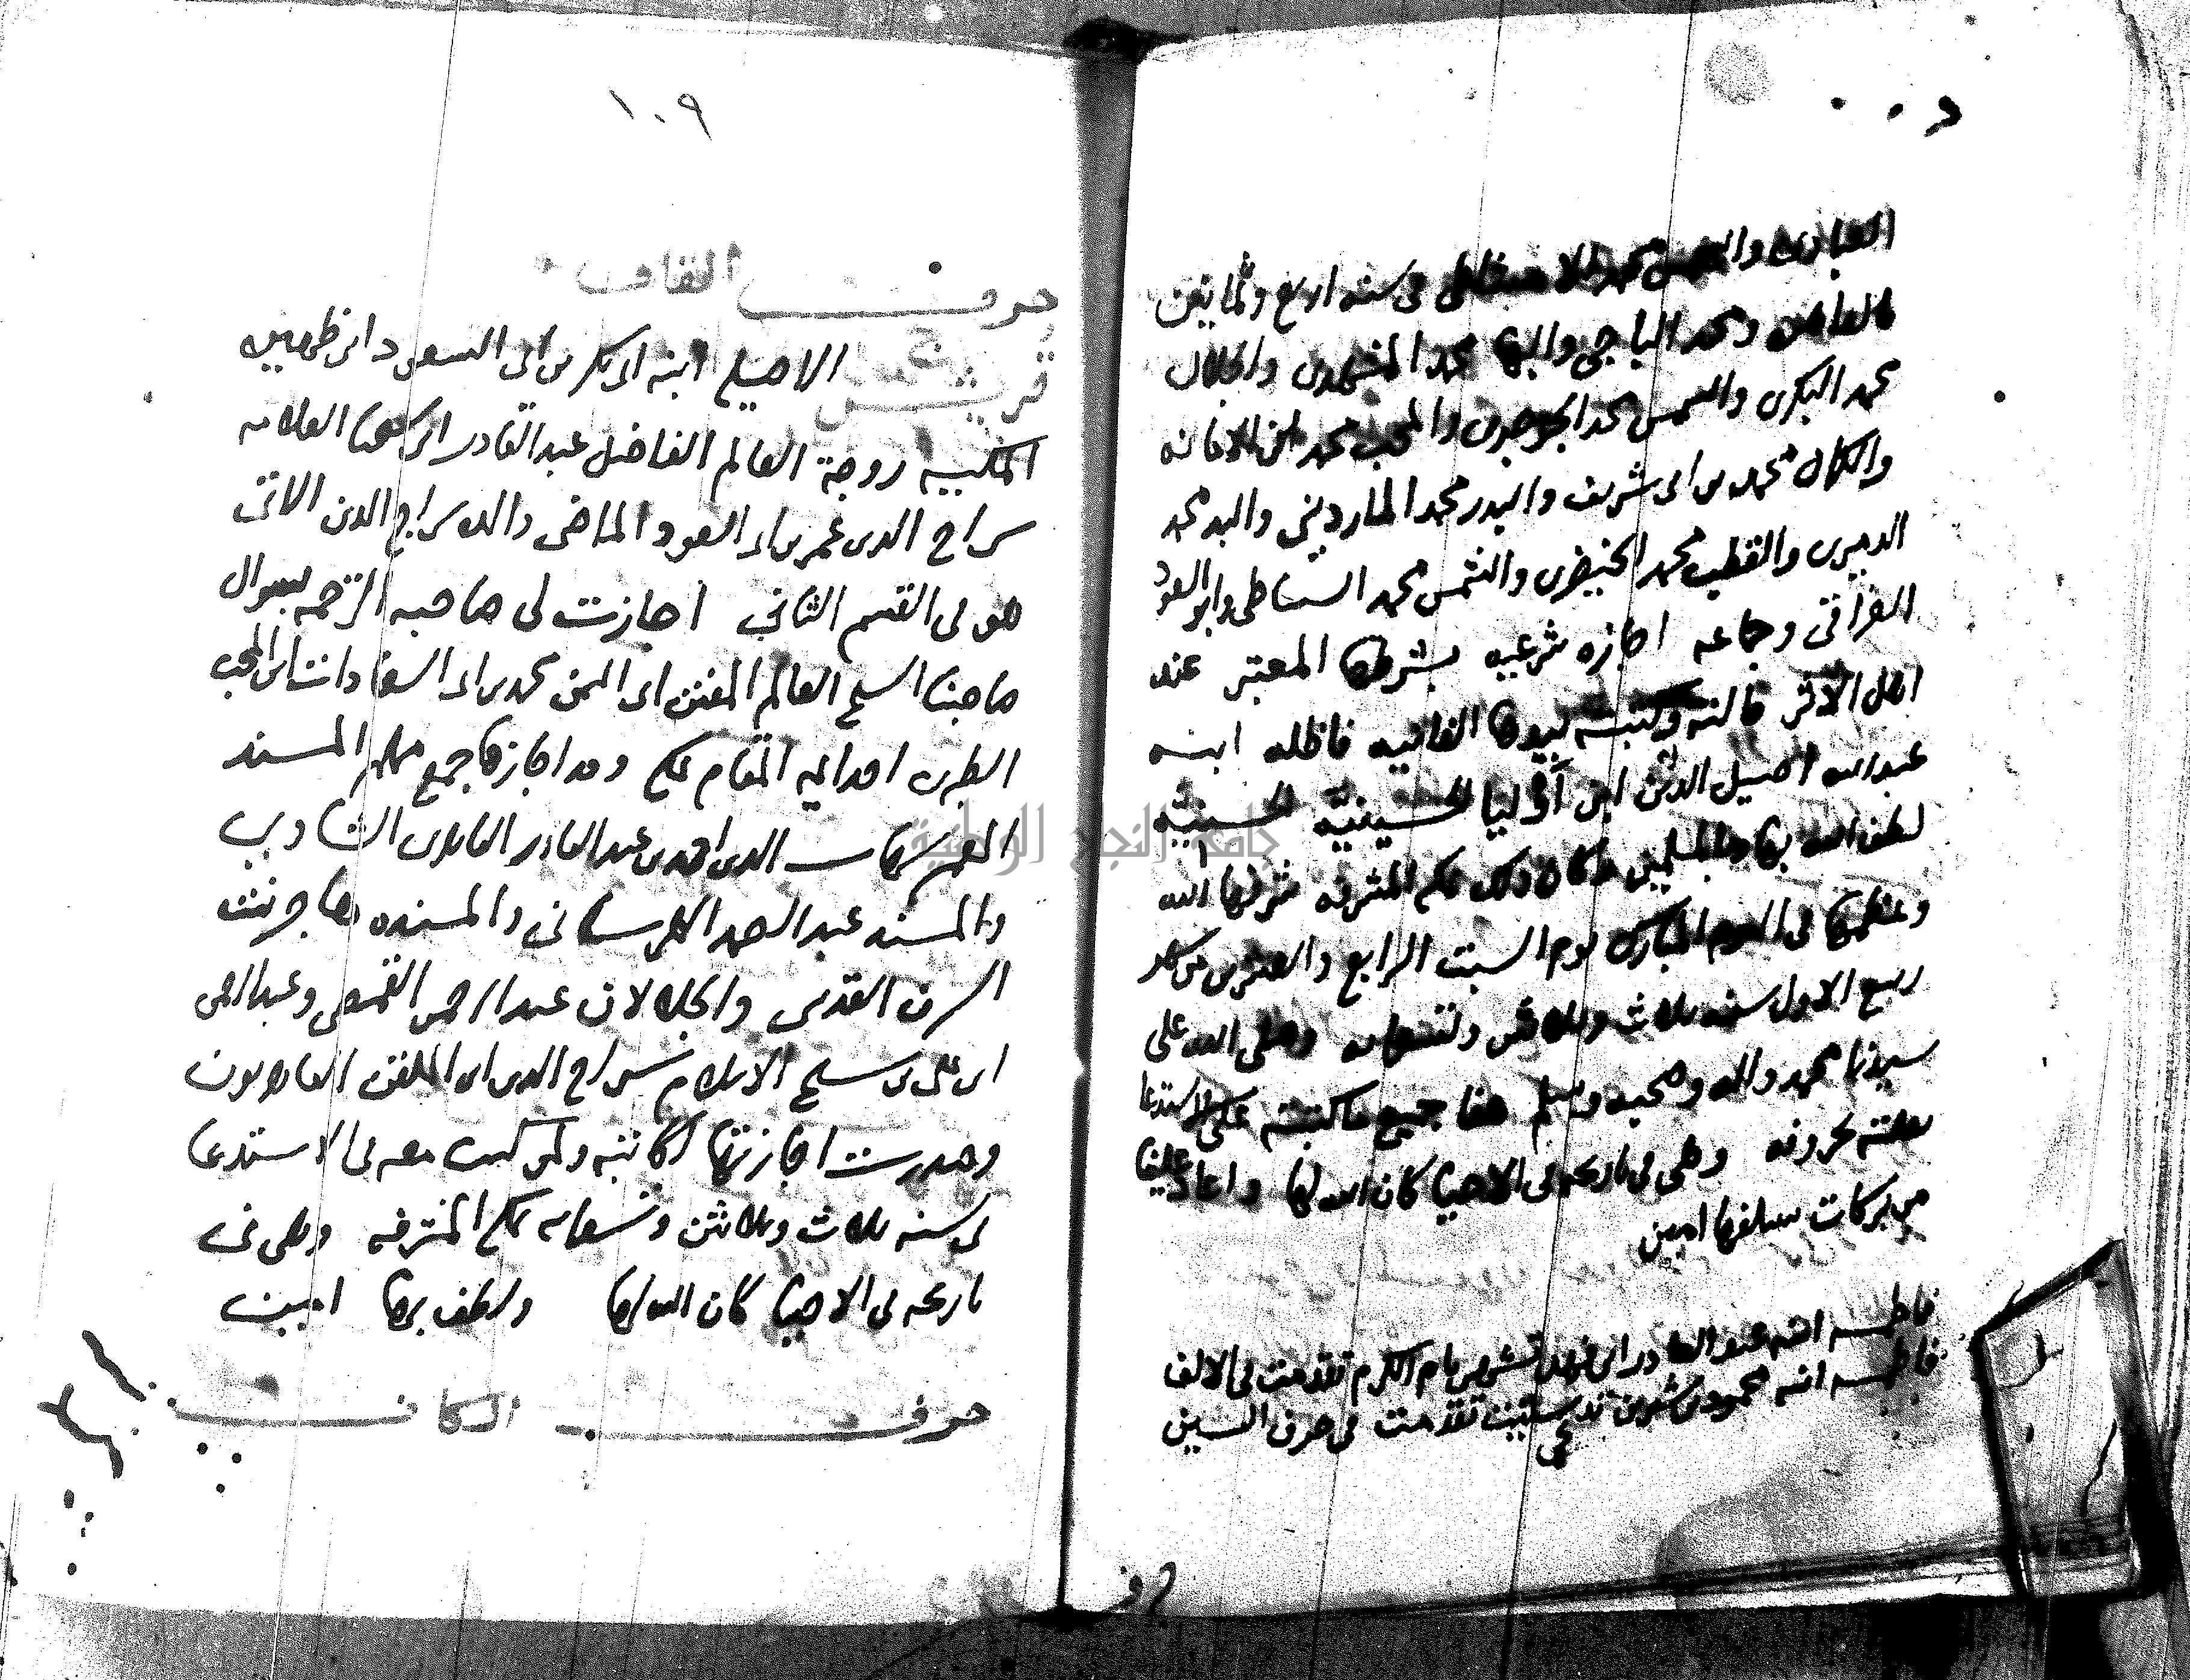 العبادى والشمس محمد الاسيقاطى فى سنه اربع وثمانين
بالقاهره ومحمد الباجى والبها محمد المشهدى والجلال
محمد البكرى والشمس محمد الجوجرى والمحب محمد بن الامانه
والكمال محمد بن ابى شريف والبدر محمد الماردينى والبدر محمد
الدميرى والقطب محمد الخيضرى والشمس محمد السنباطى وابو السعود
الغراقى وجماعه اجازه شرعيه بشرطها المعتبر عند
اهل الاثر قالته وكتبته بيدها الفانيه فاطمه ابنه
عبد الله اصيل الدين ابن اوليا الحسينية الحسنية
لطف الله بها وبالمسلمين وكان ذلك بمكه المشرفه شرفها الله
وعظمها فى اليوم المبارك يوم السبت الرابع والعشرين من شهر
ربيع الاول سنه ثلاث وثلاثين وتسعمايه وصلى الله على
سيدنا محمد واله وصحبه وسلم هذا جميع ما كتبته على الاستدعا
نقلته بحروفه وهى فى تاريخه فى الاحيا كان الله لها واعاد علينا
من بركات سلفها امين
فاطمه ابنه عبد القادر ابن فهد تسمى بام الكرم تقدمت فى الالف
فاطمه ابنه محمود بن شيرين تدعى ستيت تقدمت فى حرف السين
حرف
١٠٩
حرف القاف
قريش الاصيله ابنه ابى بكر بن ابى السعود ابن ظهيره
المكيه زوجة العالم الفاضل عبد القادر ابن شيخنا العلامه
سراج الدين عمر بن ابى السعود الماضى والده سراج الدين الاتى
هو فى القسم الثانى اجازت لى صاحبه الترجمه بسوال
صاحبنا الشيخ العالم المفنن ابى اليمن محمد بن ابى السعادات ابن المحب
الطبرى احد ايمه المقام بمكه وقد اجازها جمع منهم المسند
المعمر شهاب الدين احمد بن عبد القادر القاهرى الشاوى
والمسند عبد الصمد الهرساني والمسنده هاجر بنت
الشرف القدسى والجلالان عبد الرحمن القمصى وعبد الرحمن
ابن على بن شيخ الاسلام سراج الدين ابن الملقن القاهريون
وصدرت اجازتها الكاتبه ولمن كتب معه فى الاستدعا
فى سنه ثلاث وثلاثين وتسعمايه بمكه المشرفه وهى فى
تاريخه فى الاحيا كان الله لها ولطف بها امين
حرف الكاف
جامعة النجاح الوطنية